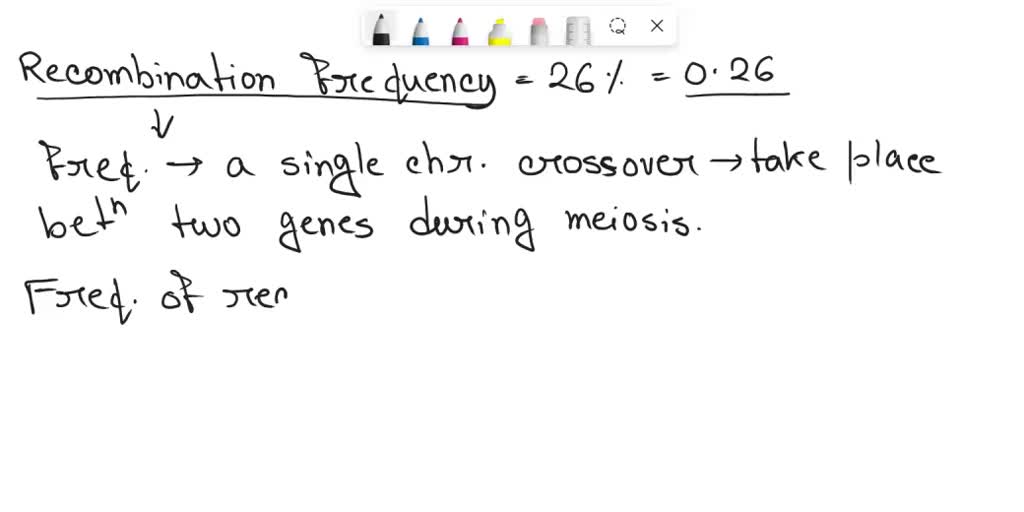 Recombination Frequency = 26% = 0.26
↓
Freq. → a single chr. crossover → take place
betⁿ two genes during meiosis.
Freq. of rer